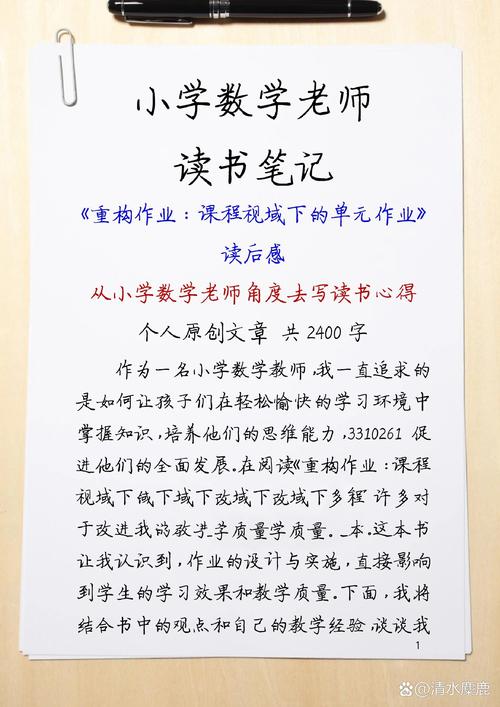 小学数学老师
读书笔记
《重构作业：课程视域下的单元作业》
读后感
从小学数学老师角度去写读书心得
个人原创文章 共2400字
作为一名小学数学教师,我一直追求的
是如何让孩子们在轻松愉快的学习环境中
掌握知识,培养他们的思维能力,3310261 促
进他们的全面发展.在阅读《重构作业：课程
视域下域下改域下改域下多程 许多对
于改进我的教学质量学质量. 本.这本书
让我认识到,作业的设计与实施,直接影响
到学生的学习效果和教学质量.下面,我将
结合书中的观点和自己的教学经验,谈谈我
1
清水麋鹿